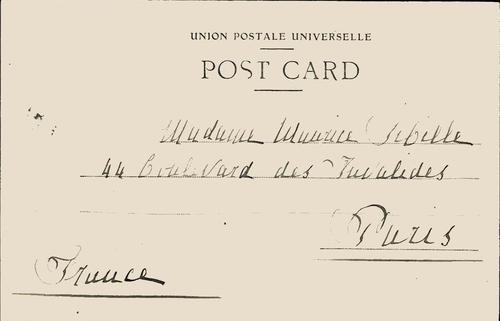 UNION POSTALE UNIVERSELLE
POST CARD
Madame Maurice Sibille
44 Boulevard des Invalides
Paris
France